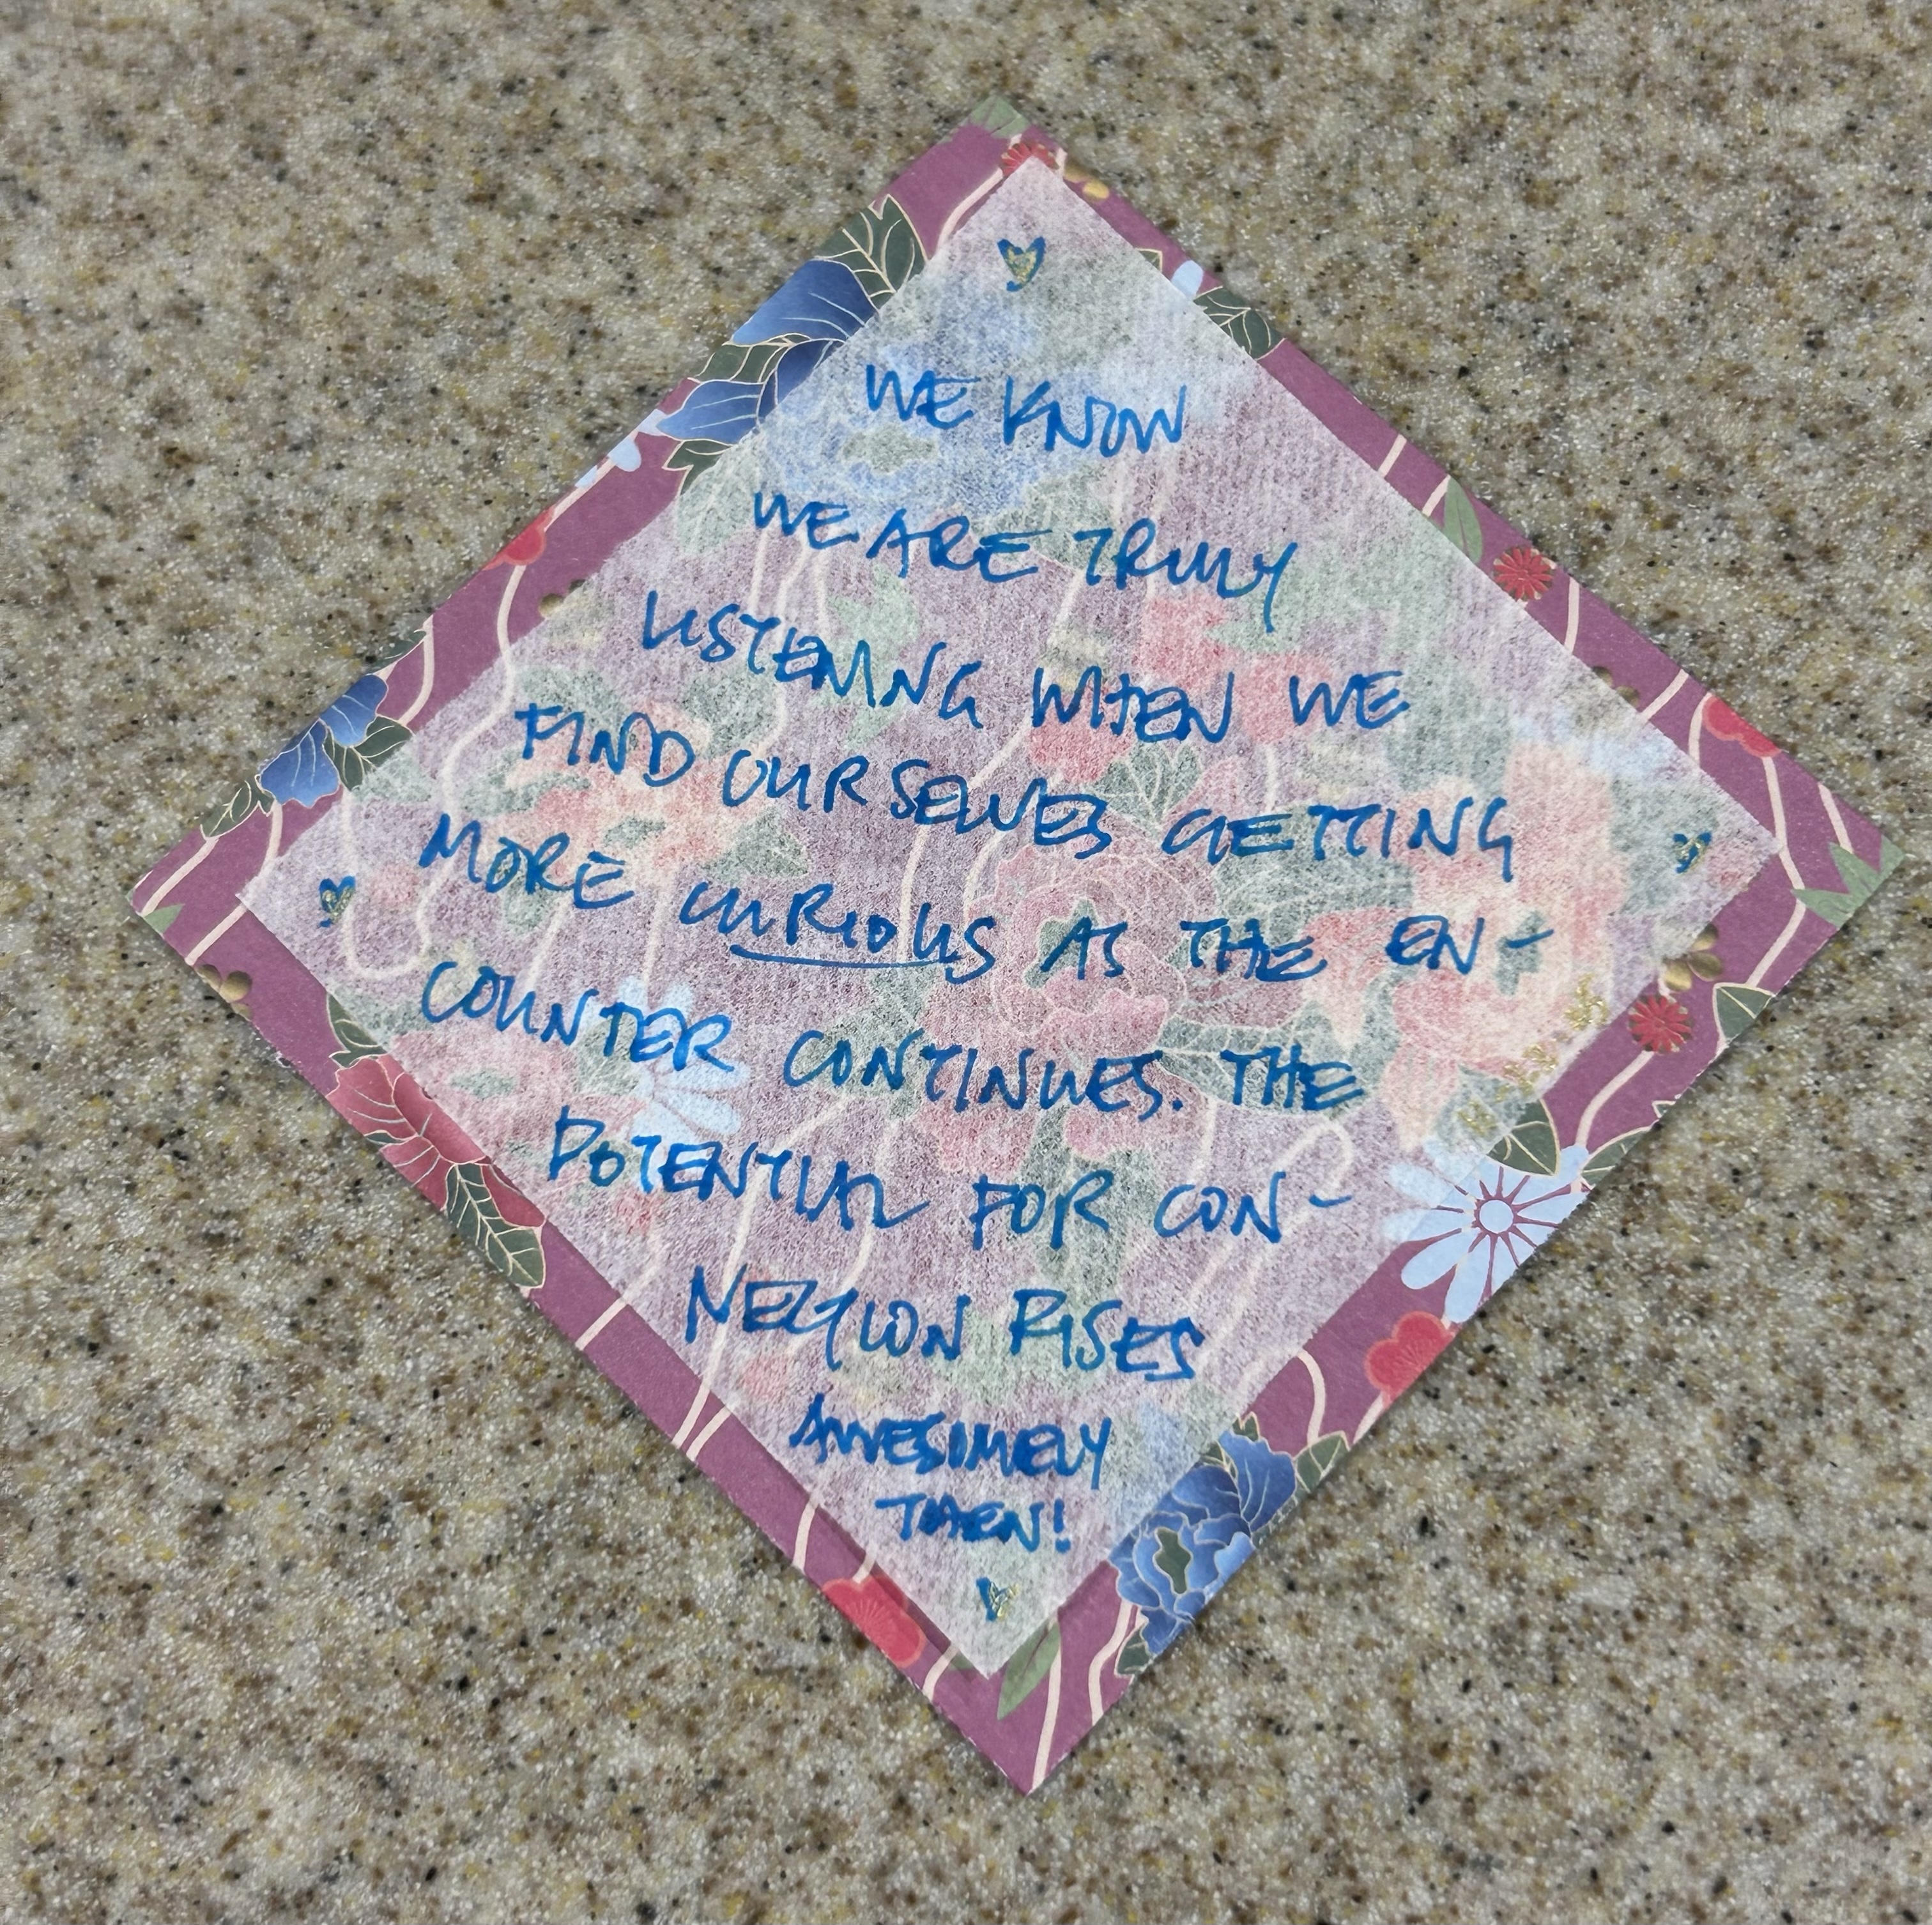 WE KNOW
WE ARE TRULY
LISTENING WHEN WE
FIND OURSELVES GETTING
MORE CURIOUS AS THE EN-
COUNTER CONTINUES. THE
POTENTIAL FOR CON-
NECTION RISES
AWESOMELY
THEN!